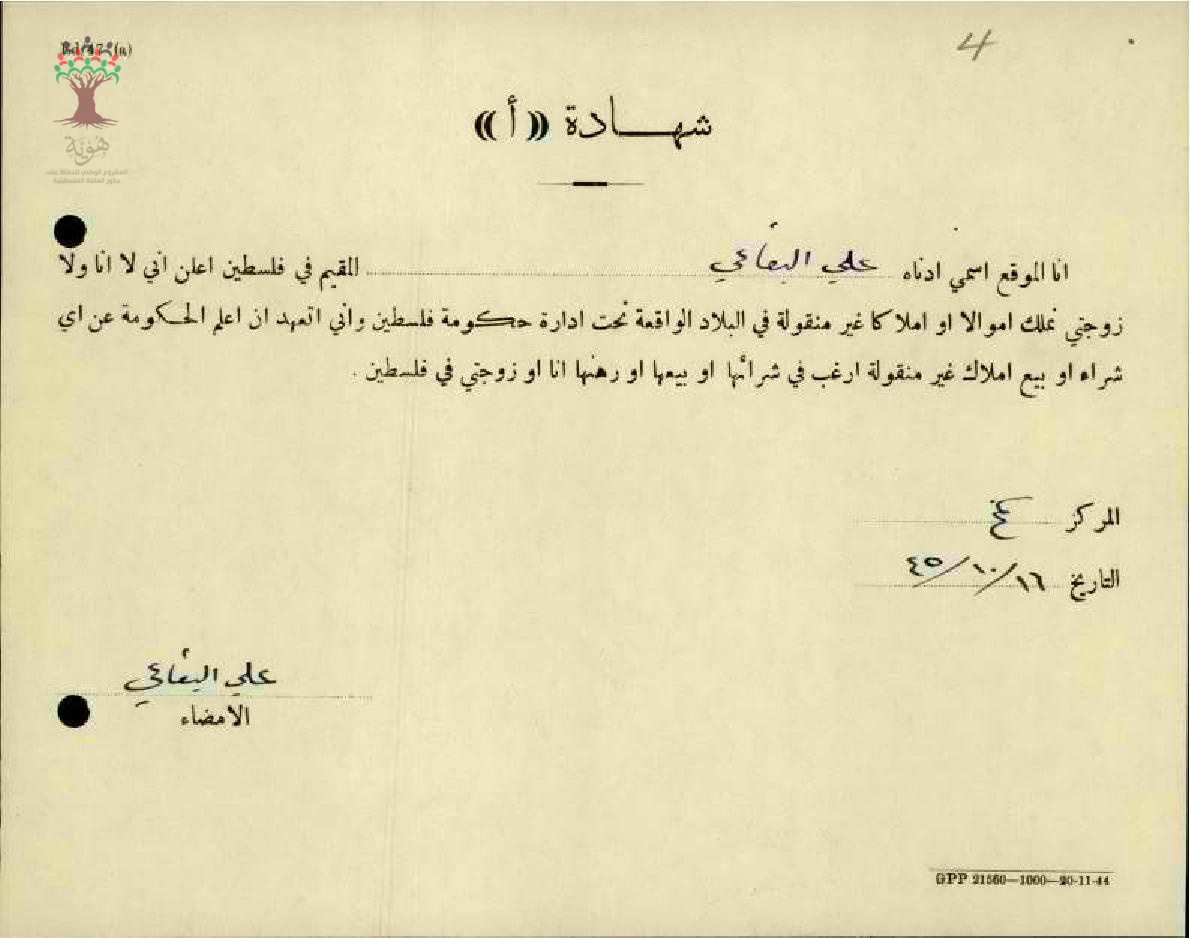 4
هوية
المشروع الوطني للحفاظ على
جذور العائلة الفلسطينية
شهـــادة ((أ))
انا الموقع اسمي ادناه علي البقاعي المقيم في فلسطين اعلن اني لا انا ولا
زوجتي نملك اموالا او املاكا غير منقولة في البلاد الواقعة تحت ادارة حكومة فلسطين واني اتعهد ان اعلم الحكومة عن اي
شراء او بيع املاك غير منقولة ارغب في شرائها او بيعها او رهنها انا او زوجتي في فلسطين .
المركز
التاريخ ١٦/١٠/٤٥
علي البقاعي
الامضاء
GPP 21560—1000—20-11-44